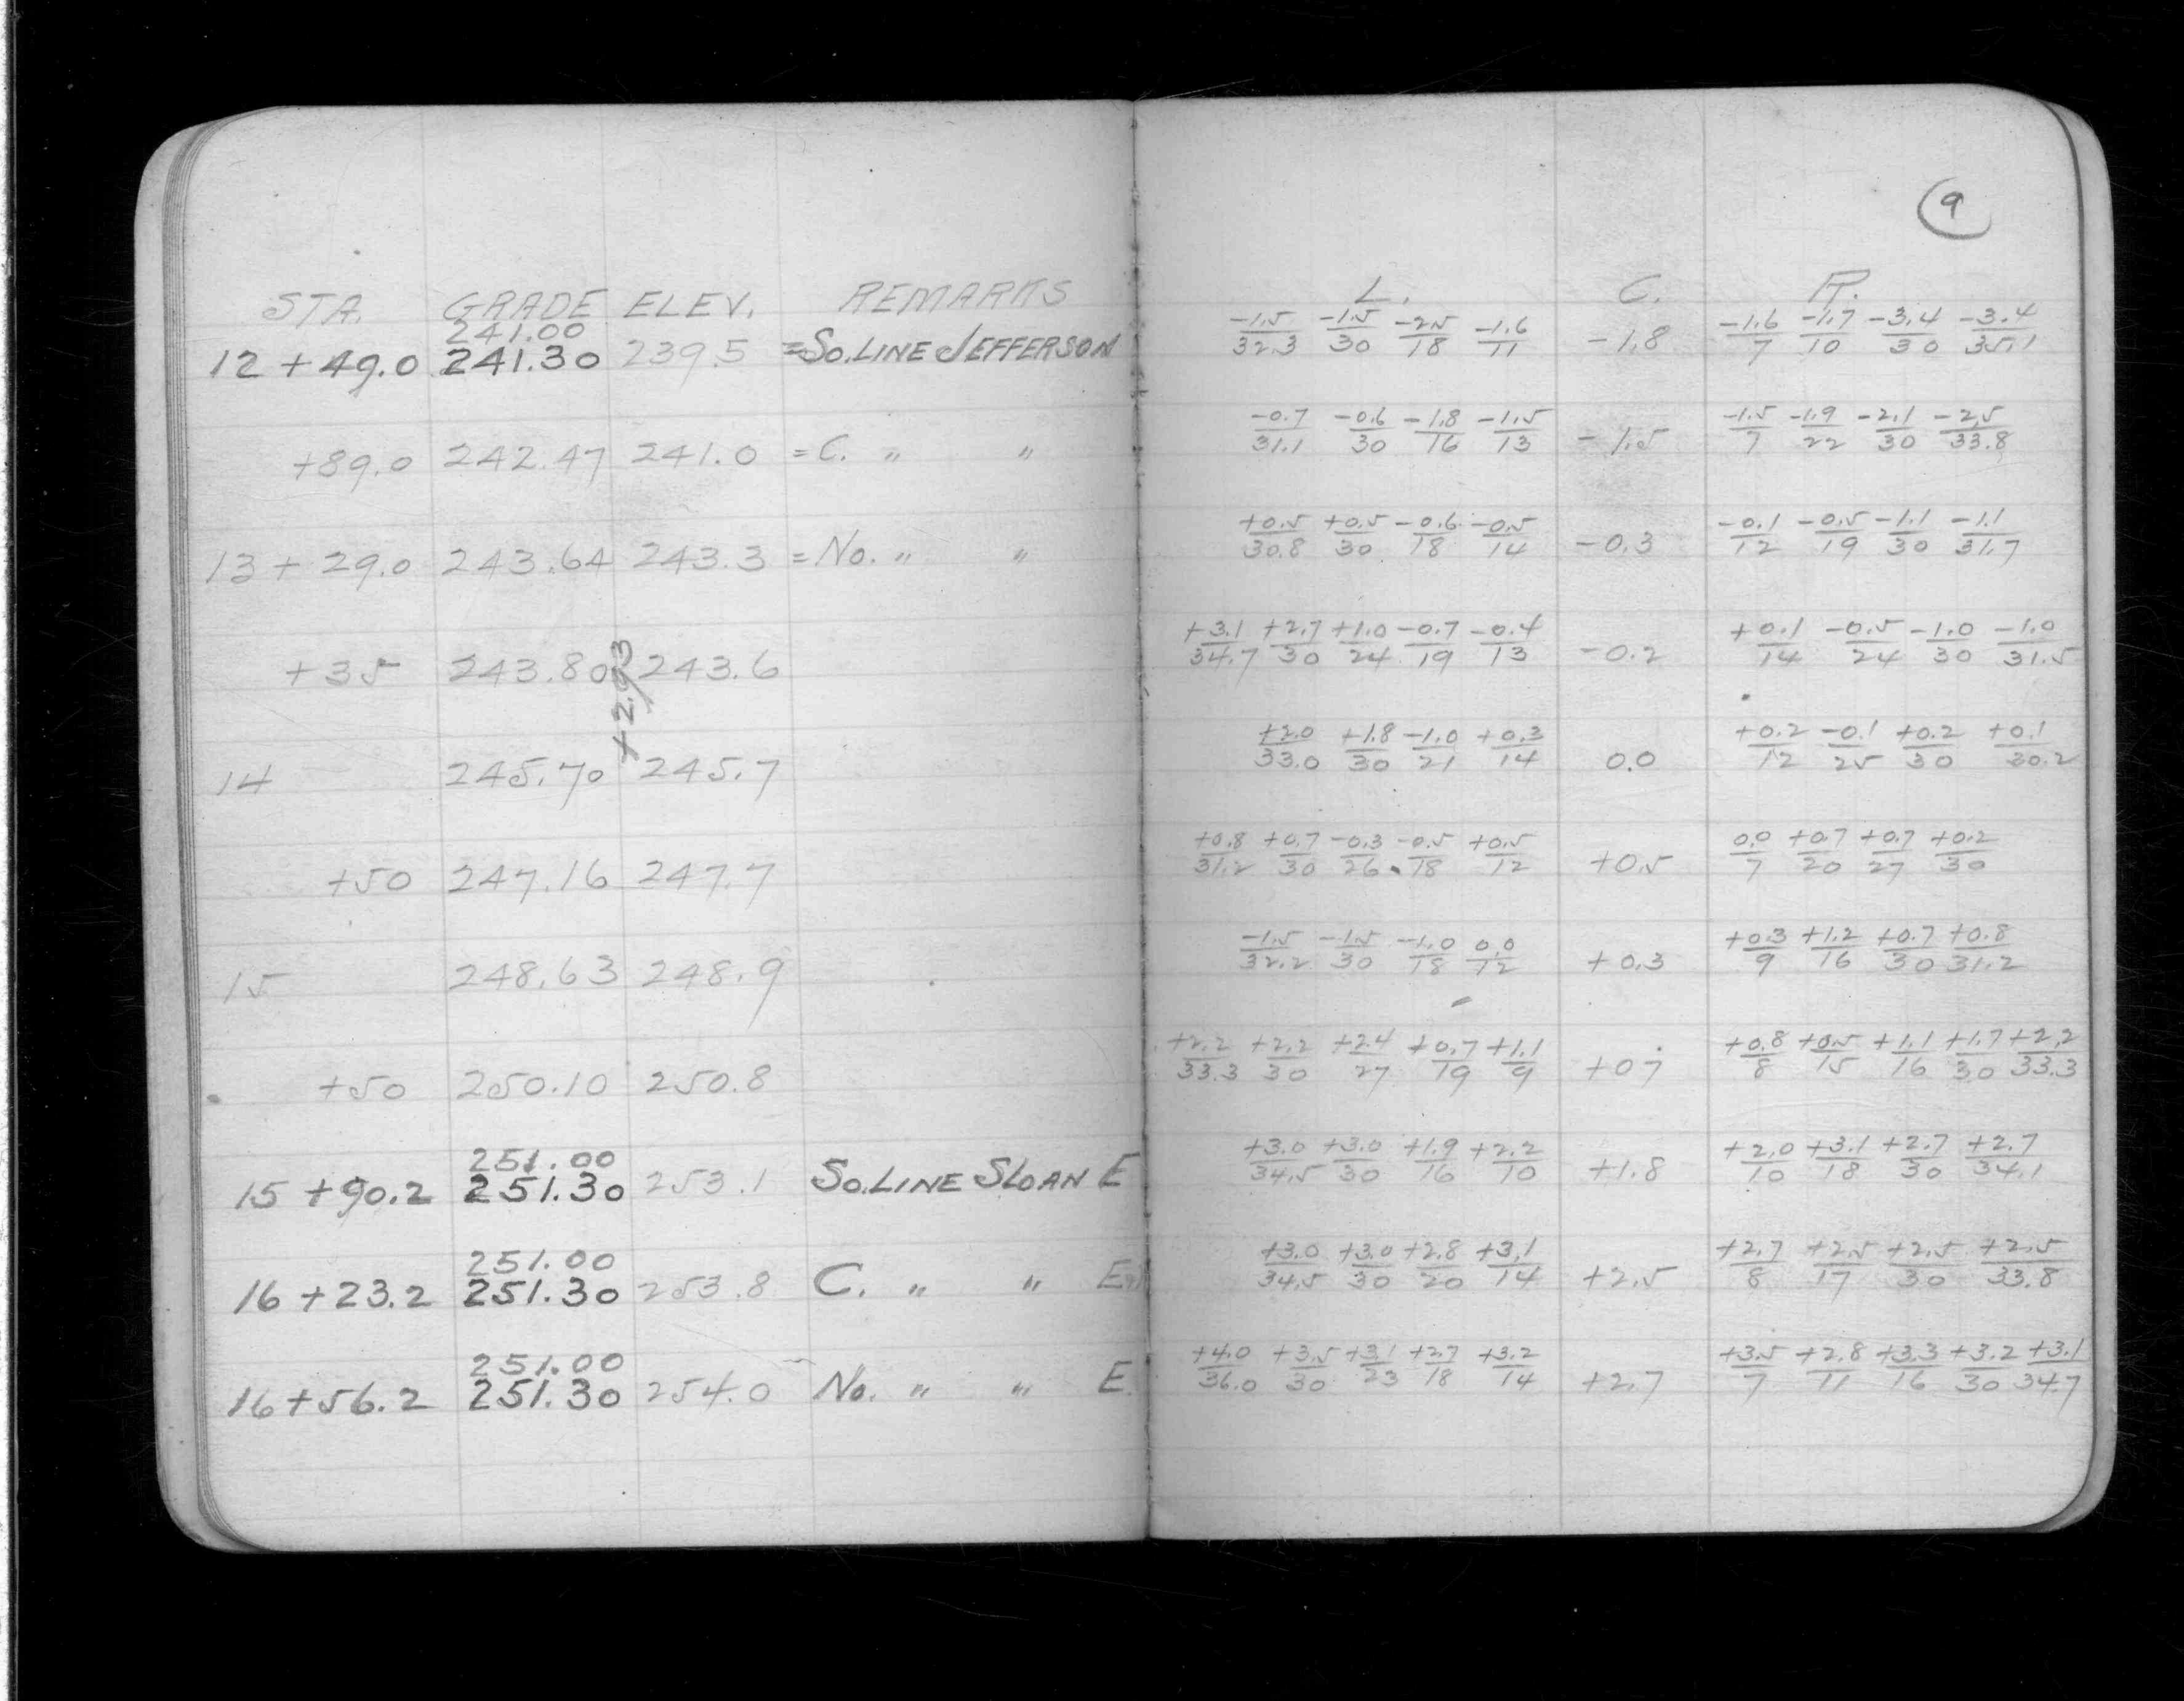 9
STA. GRADE ELEV. REMARKS L. C. R.
241.00
12 + 49.0 241.30 239.5 = So. LINE JEFFERSON -1.5/32.3 -1.5/30 -2.5/18 -1.6/11 -1.8 -1.6/7 -1.7/10 -3.4/30 -3.4/35.1
+89.0 242.47 241.0 = C. " " -0.7/31.1 -0.6/30 -1.8/16 -1.5/13 -1.5 -1.5/7 -1.9/22 -2.1/30 -2.5/33.8
13 + 29.0 243.64 243.3 = No. " " +0.5/30.8 +0.5/30 -0.6/18 -0.5/14 -0.3 -0.1/12 -0.5/19 -1.1/30 -1.1/31.7
+35 243.80 243.6 +3.1/34.7 +2.7/30 +1.0/24 -0.7/19 -0.4/13 -0.2 +0.1/14 -0.5/24 -1.0/30 -1.0/31.5
+2.93
14 245.70 245.7 +2.0/33.0 +1.8/30 -1.0/21 +0.3/14 0.0 +0.2/12 -0.1/25 +0.2/30 +0.1/30.2
+50 247.16 247.7 +0.8/31.2 +0.7/30 -0.3/26 -0.5/18 +0.5/12 +0.5 0.0/7 +0.7/20 +0.7/27 +0.2/30
15 248.63 248.9 -1.5/32.2 -1.5/30 -1.0/18 0.0/12 +0.3 +0.3/9 +1.2/16 +0.7/30 +0.8/31.2
+50 250.10 250.8 +2.2/33.3 +2.2/30 +2.4/27 +0.7/19 +1.1/9 +0.7 +0.8/8 +0.5/15 +1.1/16 +1.7/30 +2.2/33.3
251.00
15 + 90.2 251.30 253.1 So. LINE SLOAN E +3.0/34.5 +3.0/30 +1.9/16 +2.2/10 +1.8 +2.0/10 +3.1/18 +2.7/30 +2.7/34.1
251.00
16 + 23.2 251.30 253.8 C. " " E. +3.0/34.5 +3.0/30 +2.8/20 +3.1/14 +2.5 +2.7/8 +2.5/17 +2.5/30 +2.5/33.8
251.00
16 + 56.2 251.30 254.0 No. " " E. +4.0/36.0 +3.5/30 +3.1/23 +2.7/18 +3.2/14 +2.7 +3.5/7 +2.8/11 +3.3/16 +3.2/30 +3.1/34.7